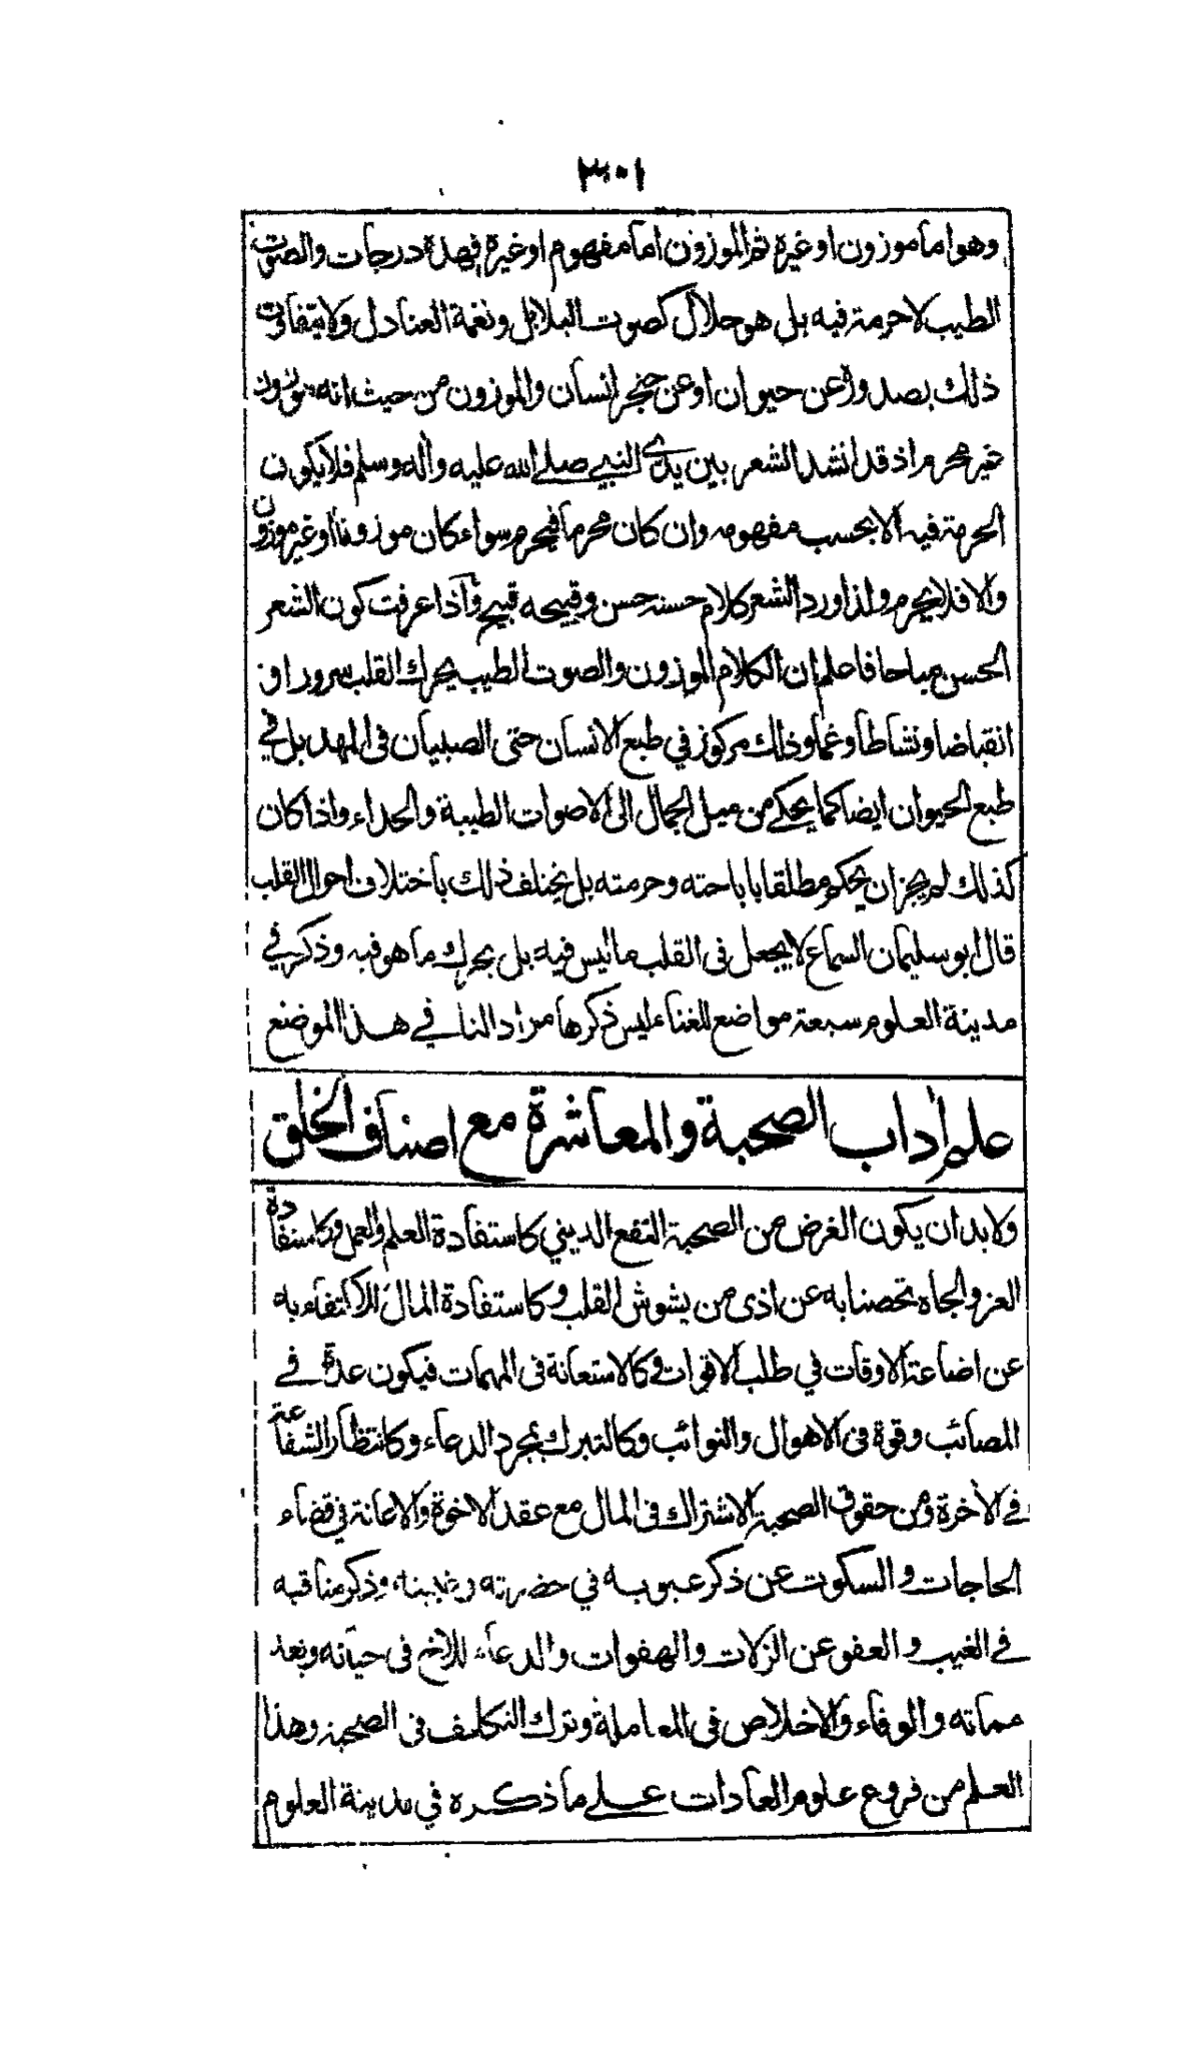 ٣٠١
وهو اما موزون او غيره ثم الموزون اما مفهوم او غيره فهذه درجات والصوت
الطيب لا حرمة فيه بل هو حلال كصوت البلابل ونغمة العنادل ولا يتفاوت
ذلك بصدوره عن حيوان او عن حنجر انسان والموزون من حيث انه موزون
غير محرم اذ قد انشد الشعر بين يدى النبي صلى الله عليه واله وسلم فلا يكون
الحرمة فيه الا بحسب مفهومه وان كان محرما فيحرم سواء كان موزونا او غير موزون
والا فلا يحرم ولذا ورد الشعر كلام حسنه حسن وقبيحه قبيح واذا عرفت كون الشعر
الحسن مباحا فاعلم ان الكلام الموزون والصوت الطيب يحرك القلب سرورا و
انقباضا ونشاطا وغما وذلك مركوز في طبع الانسان حتى الصبيان فى المهد بل في
طبع الحيوان ايضا كما يحكى من ميل الجمال الى الاصوات الطيبة والحداء واذا كان
كذلك لم يجز ان يحكم مطلقا باباحته وحرمته بل يختلف ذلك باختلاف احوال القلب
قال ابو سليمان السماع لا يجعل فى القلب ما ليس فيه بل يحرك ما هو فيه وذكر في
مدينة العلوم سبعة مواضع للغناء ليس ذكرها مرادالنا في هذا الموضع
علم اداب الصحبة والمعاشرة مع اصناف الخلق
ولا بد ان يكون الغرض من الصحبة النفع الديني كاستفادة العلم والعمل وكاستفادة
العز والجاه تحصنا به عن اذى من يشوش القلب وكاستفادة المال للاكتفاء به
عن اضاعة الاوقات في طلب الاقوات وكالاستعانة فى المهمات فيكون عدة في
المصائب وقوة فى الاهوال والنوائب وكالتبرك بمجرد الدعاء وكانتظار الشفاعة
في الاخرة ومن حقوق الصحبة الاشتراك فى المال مع عقد الاخوة والاعانة في قضاء
الحاجات والسكوت عن ذكر عيوبه في حضرته وغيبته وذكر مناقبه
في الغيب والعفو عن الزلات والهفوات والدعاء للاخ فى حياته وبعد
مماته والوفاء والاخلاص فى المعاملة وترك التكلف فى الصحبة وهذا
العلم من فروع علوم العادات على ما ذكره في مدينة العلوم